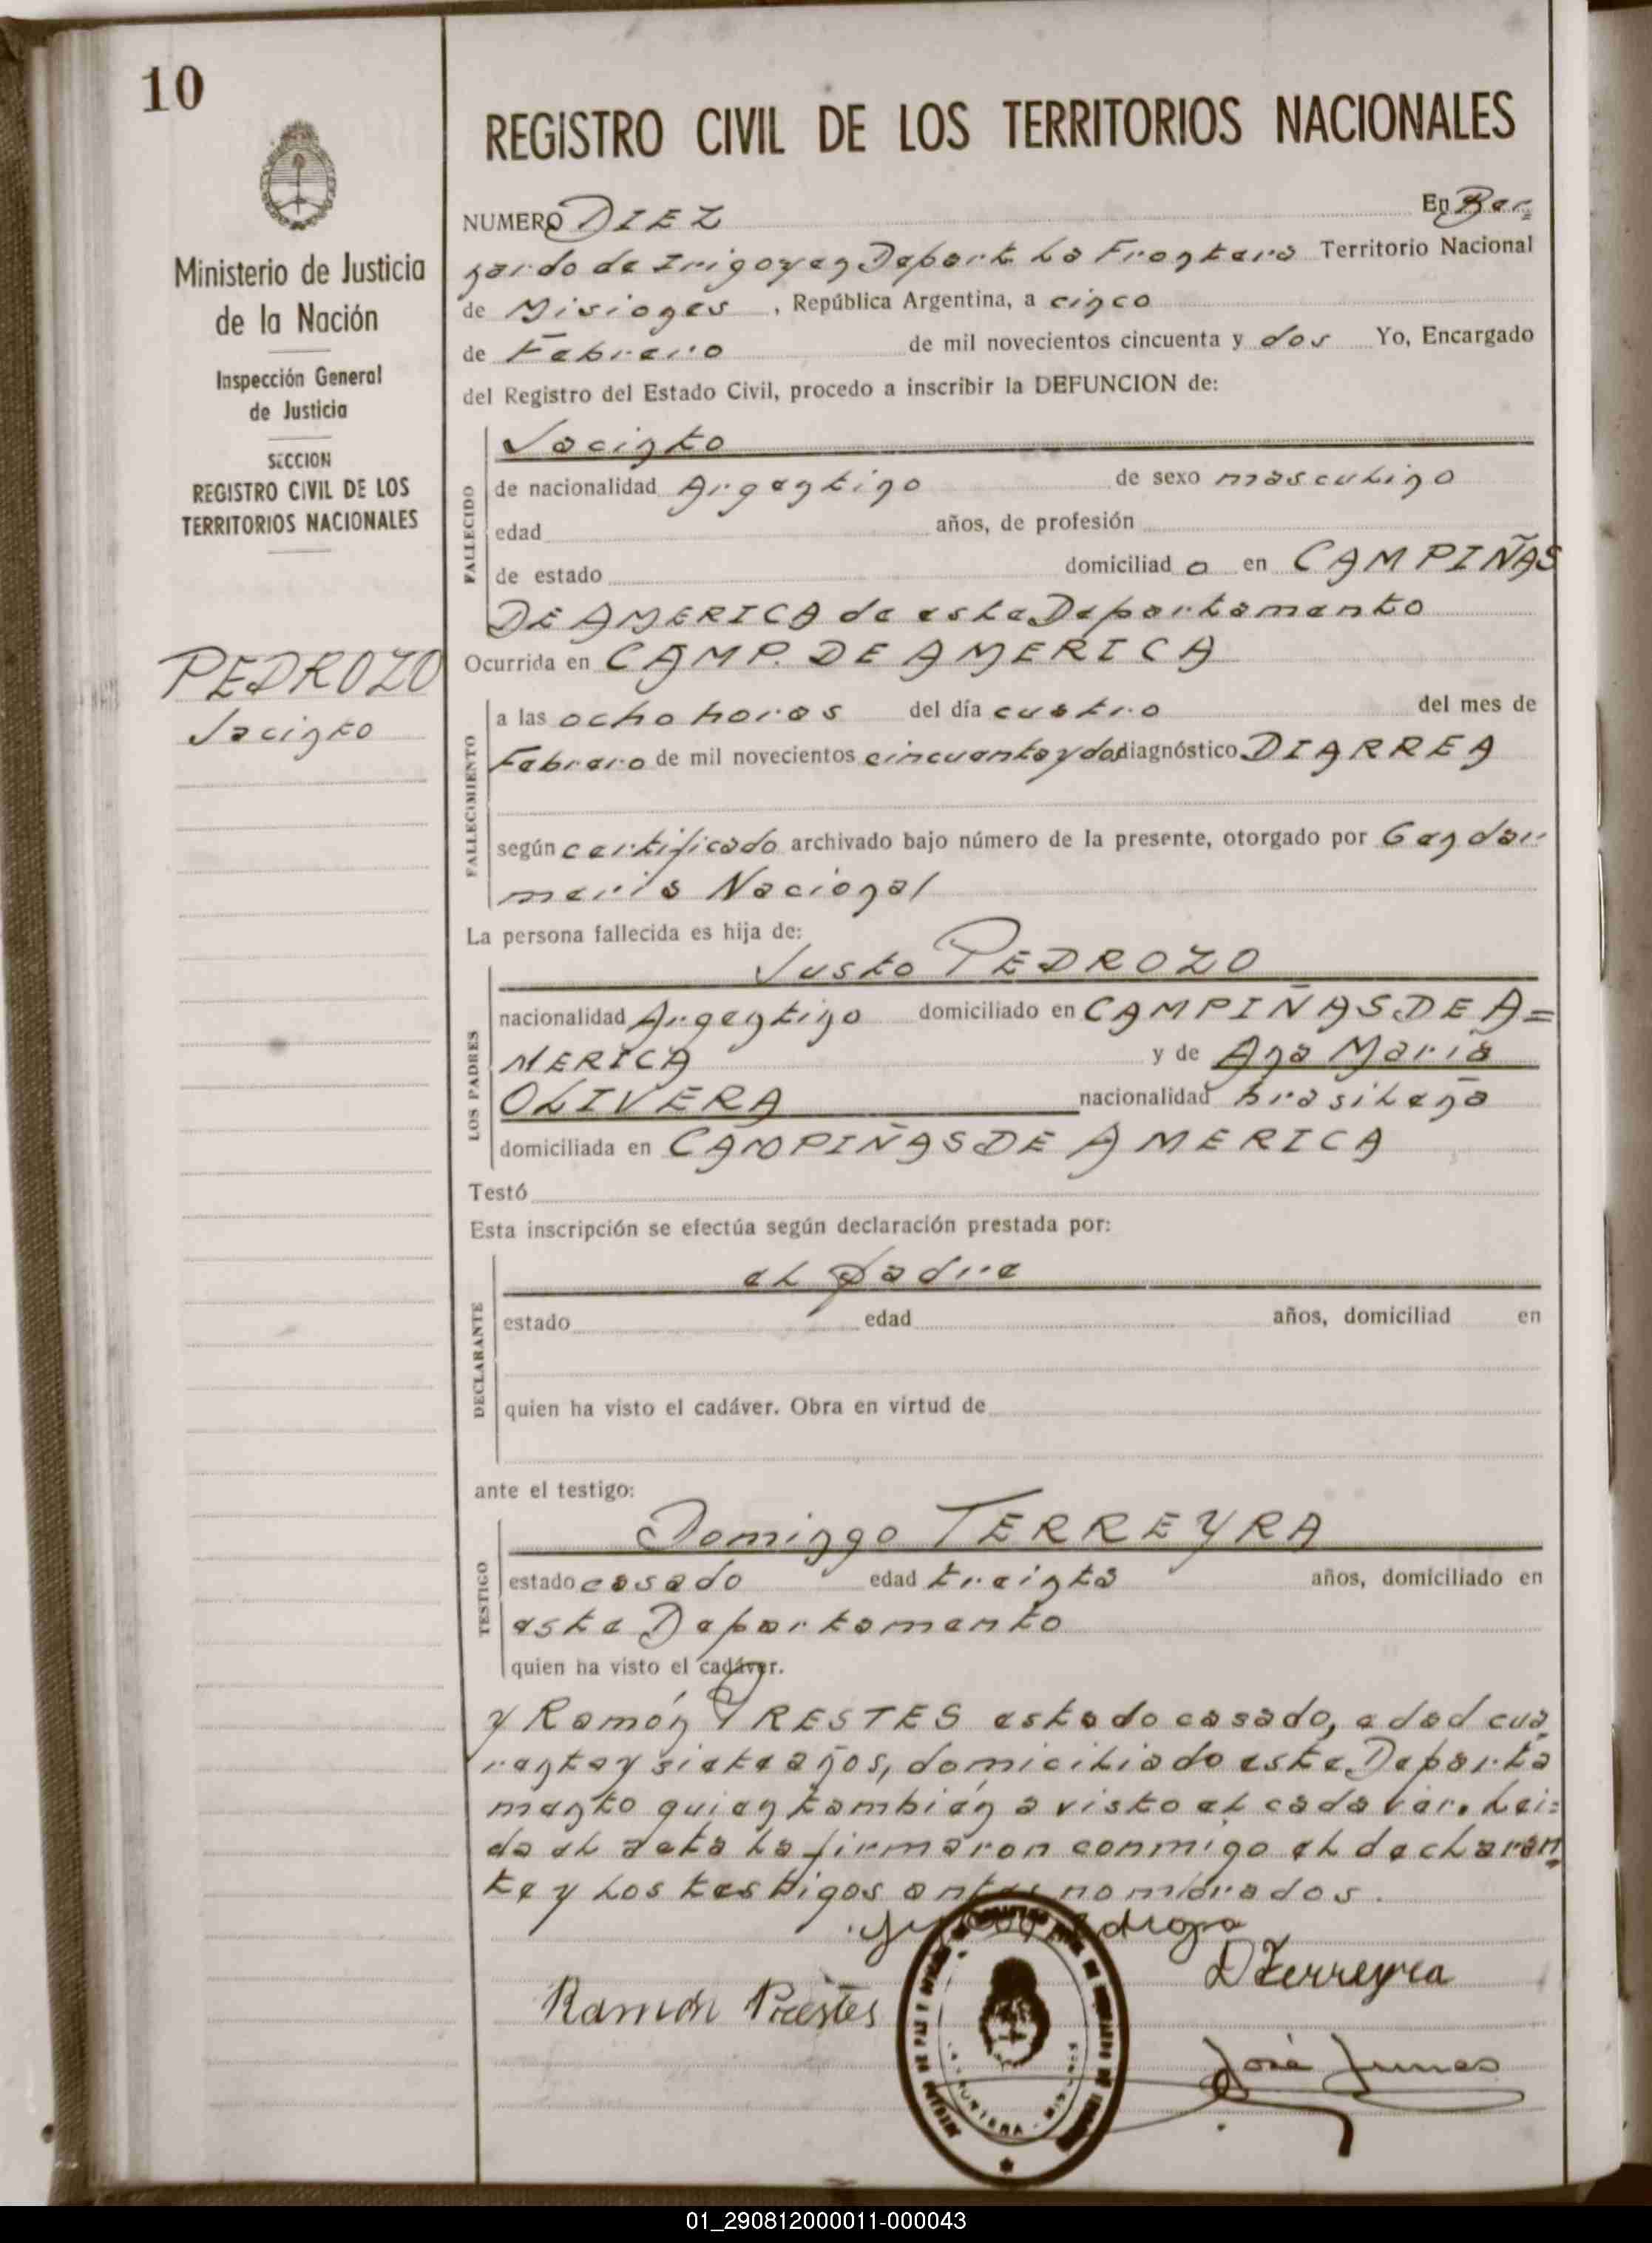 10
Ministerio de Justicia
de la Nación
Inspección General
de Justicia
SECCION
REGISTRO CIVIL DE LOS
TERRITORIOS NACIONALES
PEDROZO
Jacinto
REGISTRO CIVIL DE LOS TERRITORIOS NACIONALES
NUMERO DIEZ En Ber=
nardo de Irigoyen Depart. La Frontera Territorio Nacional
de Misiones, República Argentina, a cinco
de Febrero de mil novecientos cincuenta y dos Yo, Encargado
del Registro del Estado Civil, procedo a inscribir la DEFUNCION de:
FALLECIDO
Jacinto
de nacionalidad Argentino de sexo masculino
edad años, de profesión
de estado domiciliad o en CAMPIÑAS
DE AMERICA de este Departamento
Ocurrida en CAMP. DE AMERICA
FALLECIMIENTO
a las ocho horas del día cuatro del mes de
Febrero de mil novecientos cincuenta y dos diagnóstico DIARREA
según certificado archivado bajo número de la presente, otorgado por Gendar
meria Nacional
La persona fallecida es hija de:
LOS PADRES
Justo PEDROZO
nacionalidad Argentino domiciliado en CAMPIÑAS DE A=
MERICA y de Ana Maria
OLIVERA nacionalidad brasileña
domiciliada en CAMPIÑAS DE AMERICA
Testó
Esta inscripción se efectúa según declaración prestada por:
DECLARANTE
el padre
estado edad años, domiciliad en
quien ha visto el cadáver. Obra en virtud de
ante el testigo:
TESTIGO
Domingo TERREYRA
estado casado edad treinta años, domiciliado en
este Departamento
quien ha visto el cadáver.
y Ramón PRESTES estado casado, edad cua
renta y siete años, domiciliado este Departa
mento quien también a visto el cadaver. Lei=
da el acta la firmaron conmigo el declaran
te y los testigos antes nombrados.
D Terreyra
Ramón Prestes
José
01_290812000011-000043